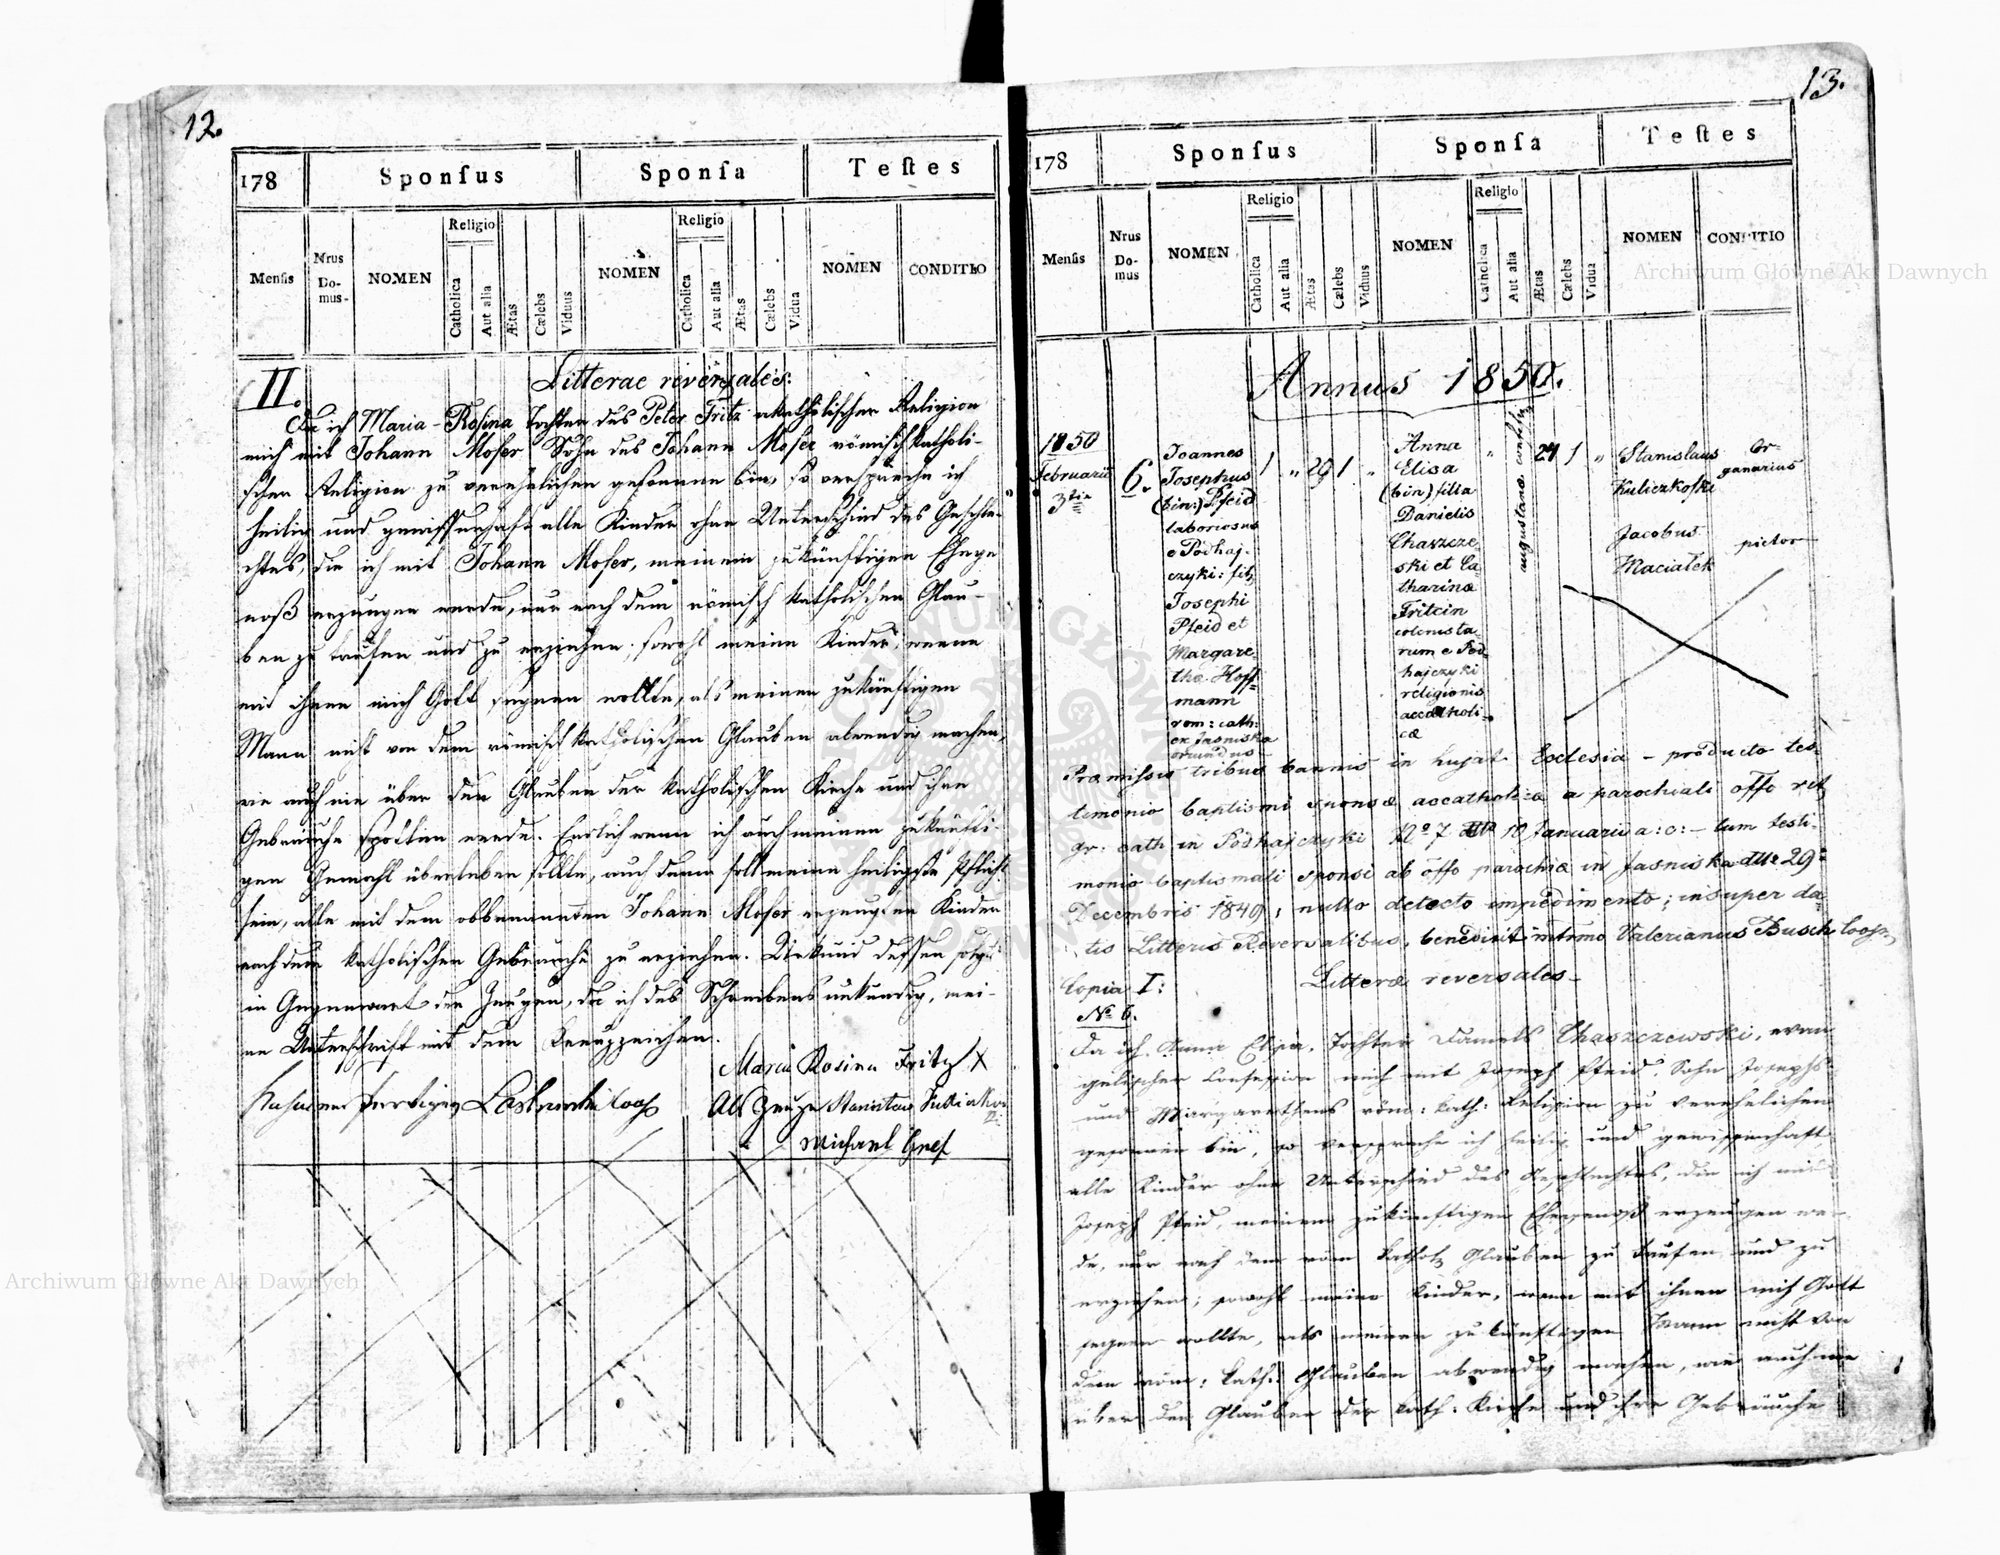 12.
178
Sponſus
Sponſa
Teſtes
Menſis
Nrus Do- mus-
NOMEN
Religio
Catholica
Aut alia
Ætas
Cælebs
Viduus
NOMEN
Religio
Catholica
Aut alia
Ætas
Cælebs
Vidua
NOMEN
CONDITIO
II.
Litterae reversales:
Da ich Maria-Rosina Tochter des Peter Fritz akatholischer Religion
mich mit Johann Moser Sohn des Johann Moser römisch katholi-
schen Religion zu verehelichen gesonnen bin, so verspreche ich
heilig und gewissenhaft alle Kinder ohne Unterschied des Geschle-
chtes, die ich mit Johann Moser, meinem zukünftigen Ehege
noß erzeugen werde, nur nach dem römisch katholischen Glau-
ben zu taufen und zu erziehen; sowohl meine Kinder, wenn
mit ihnen mich Gott segnen wollte, als meinen zukünftigen
Mann nicht von dem römisch katholischen Glauben abwendig machen,
wie auch nie über den Glauben der katholischen Kirche und ihre
Gebräuche spotten werde. Endlich wenn ich auch meinen zukünfti-
gen Gemahl überleben sollte, auch dann soll meine heiligste Pflicht
sein, alle mit dem obbenannten Johann Moser erzeugten Kinder
nach dem katholischen Gebrauche zu erziehen. Urkund dessen folgt
in Gegenwart der Zeugen, da ich des Schreibens unkundig, mei-
ne Unterschrift mit dem Kreuzzeichen.
Maria Rosina Fritz X
Als Zeuge Stanislaus
Michael Gref
13.
178
Sponſus
Sponſa
Teſtes
Menſis
Nrus Do- mus
NOMEN
Religio
Catholica
Aut alia
Ætas
Cælebs
Viduus
NOMEN
Religio
Catholica
Aut alia
Ætas
Cælebs
Vidua
NOMEN
CONDITIO
Annus 1850.
1850
Februarii
3tia
6.
Joannes
Josephus
(bin:) Pfeid
laboriosus
e Podhaj-
czyki: fil.
Josephi
Pfeid et
Margare
tha Hoff=
mann
rom: cath:
ex Jasniska
oriundus
1 " 29 1 "
Anna
Elisa
(bin) filia
Danielis
Chaszcze
ski et Ca-
tharinæ
Fritzin
colonista-
rum e Pod-
hajczyki
religionis
accatholi-
cæ
"
augustanæ confess.
24 1 "
Stanislaus
Kuliczkofski
Or-
ganarius
Jacobus
Maciałek
pictor
Præmissis tribus bannis in hujat. Ecclesia - producto tes-
timonio baptismi sponsæ accatholicæ a parochiali offo rit.
gr. cath in Podhajczyki No 7 10 Januarii a: c: - tum testi-
monio baptismali sponsi ab offo parochiæ in Jasniska dtto 29a
Decembris 1849; nullo detecto impedimento; insuper da
tis Litteris Reversalibus, benedixit intimo Valerianus Busch Coop.
Copia I:
Litteræ reversales -
No 6.
Da ich Anna Elisa, Tochter Daniels Chaszczewski, evan
gelischer Confession mich mit Joseph Pfeid Sohn Josephs
und Margarethens röm: kath: Religion zu verehelichen
gesonnen bin, so verspreche ich heilig und gewissenhaft
alle Kinder ohne Unterschied des Geschlechtes, die ich mit
Joseph Pfeid, meinem zukünftigen Ehegenoß erzeugen wer
de, nur nach dem röm kathol. Glauben zu taufen und zu
erziehen; sowohl meine Kinder, wenn mit ihnen mich Gott
segnen wollte, als meinen zukünftigen Mann nicht von
dem röm: kath: Glauben abwendig machen, wie auch nie
über den Glauben der kath: Kirche und ihre Gebräuche
Archiwum Główne Akt Dawnych
Archiwum Główne Akt Dawnych